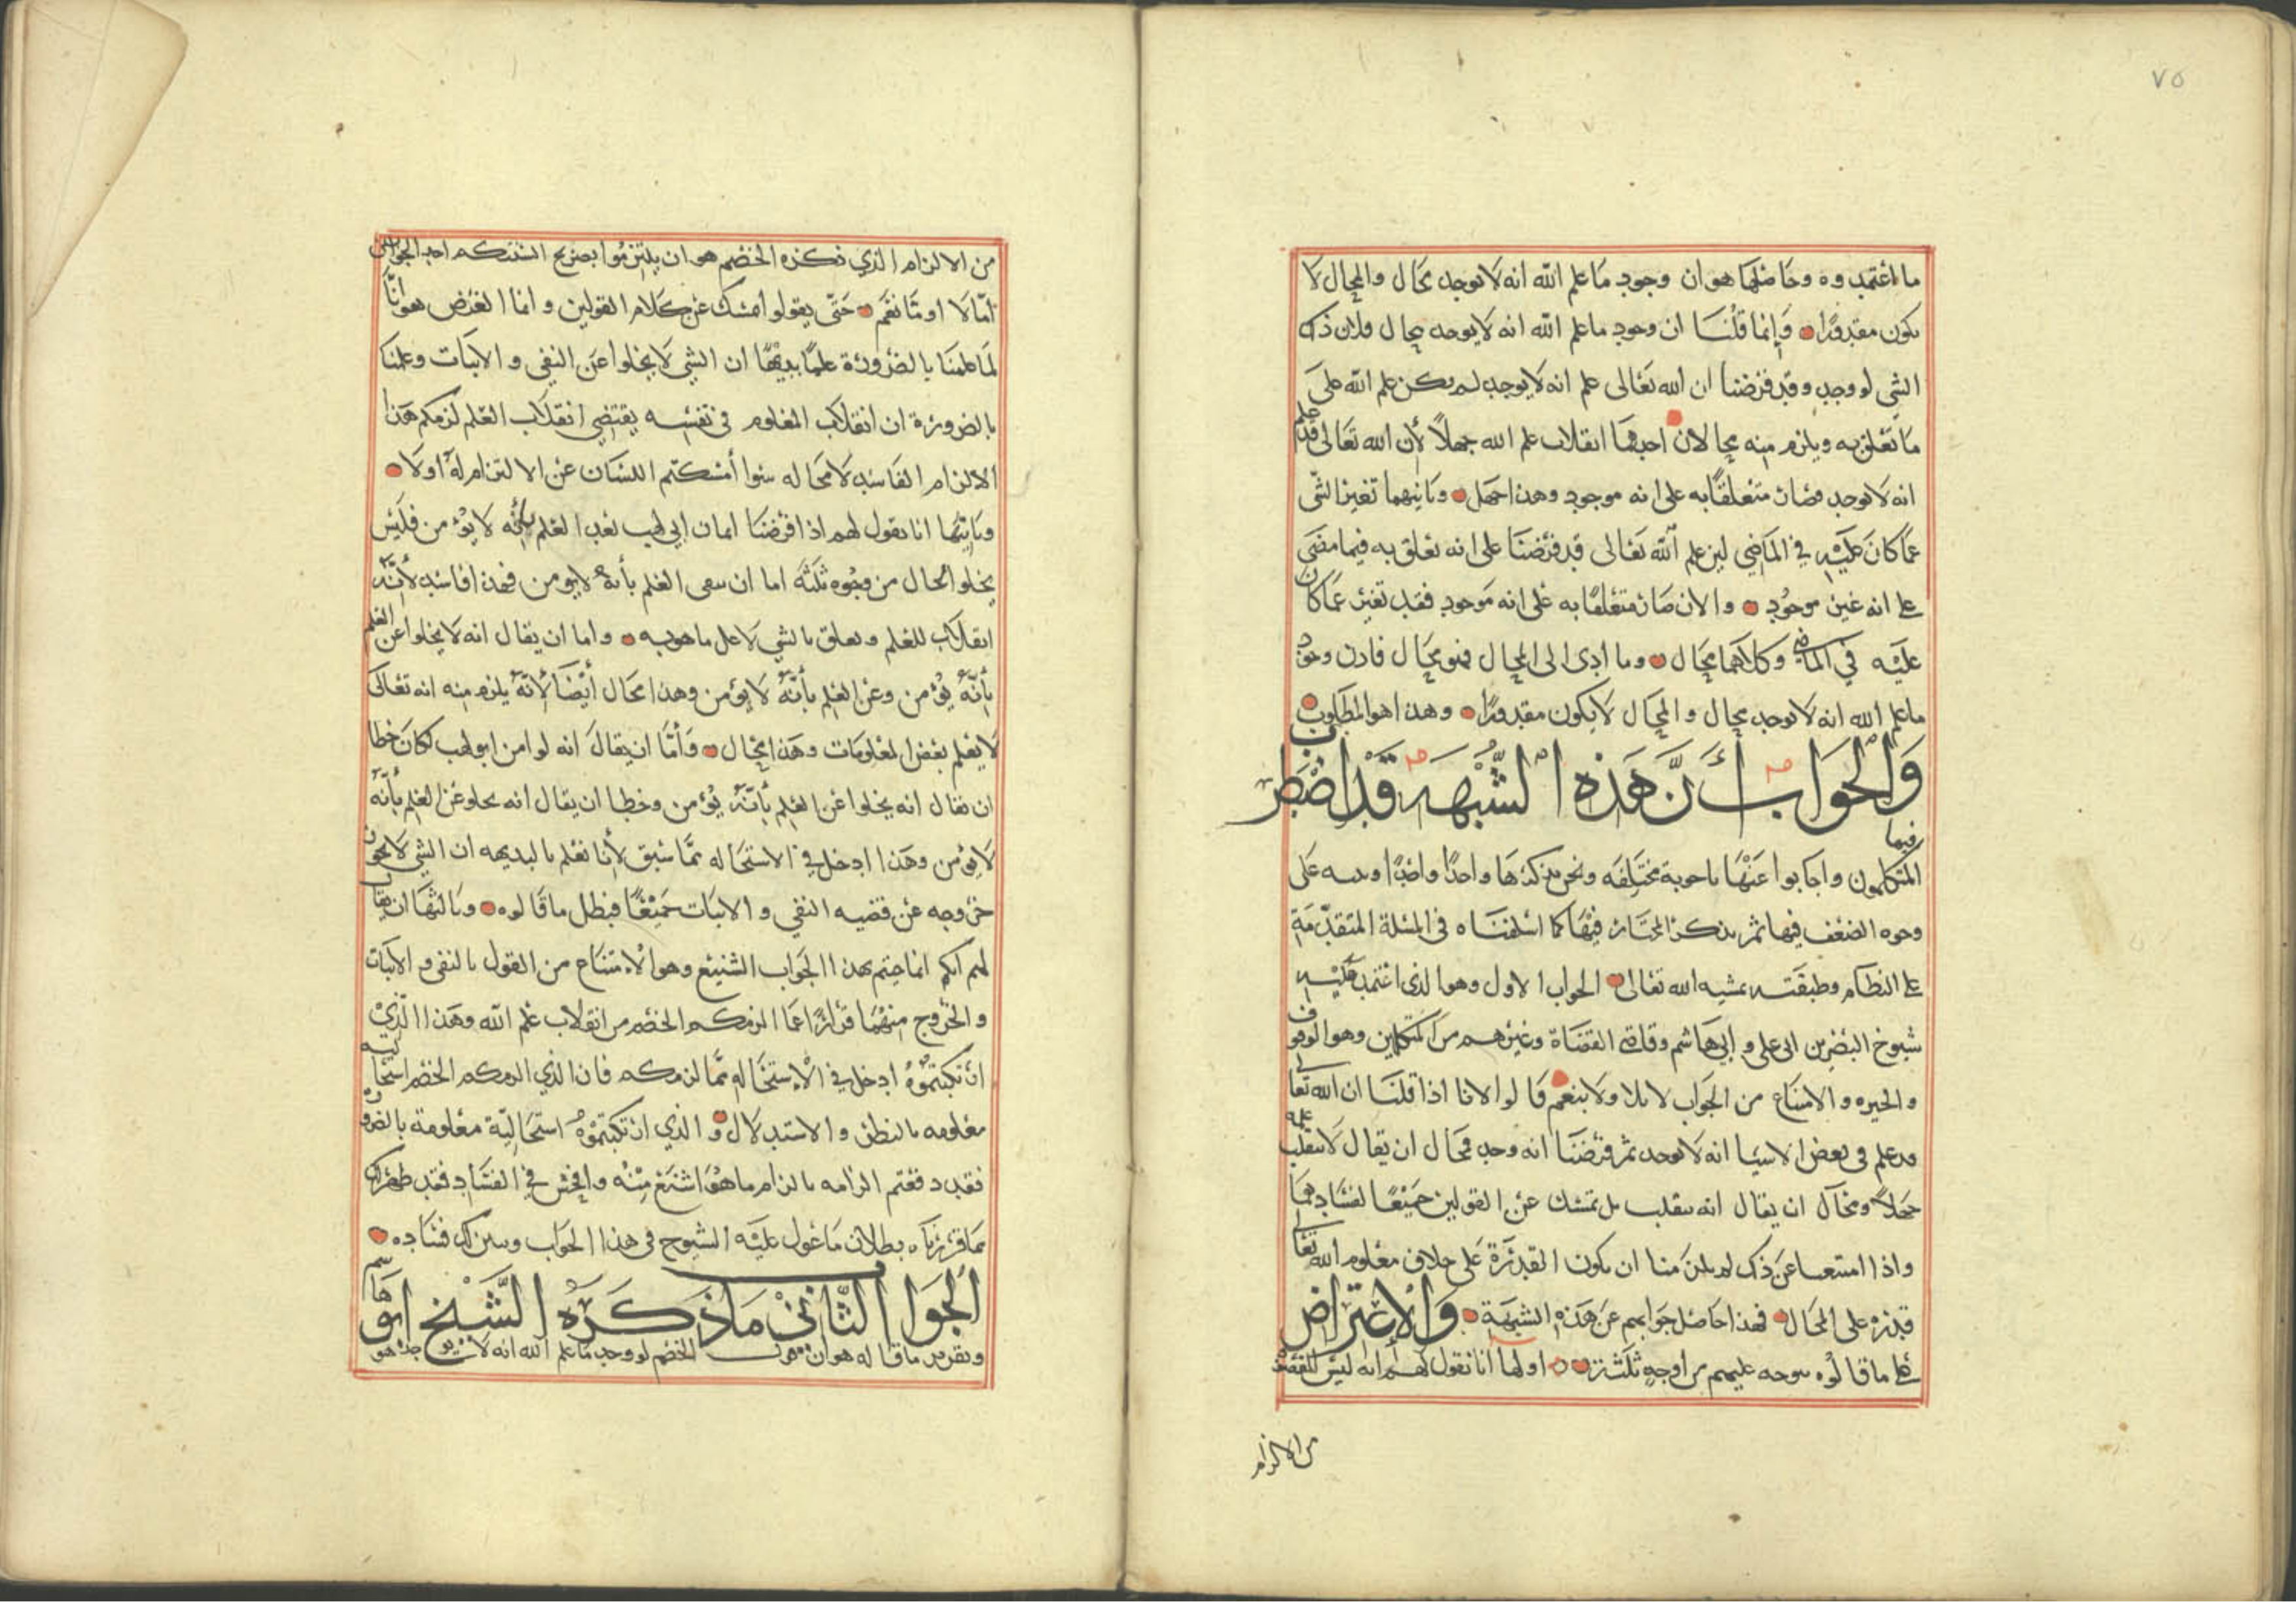 ٧٥
ما اعتمدوه وحاصلها هو ان وجود ما علم الله انه لا يوجد محال والمحال لا
يكون مقدورًا وَإنما قلْنَا ان وجود ما علم الله انه لا يوجد محال فلان ذلك
الشي لو وجد وقد فرضنا ان الله تعَالى علم انه لا يوجد لم يكن علم الله على
مَا تعْلق به ويلزم منه محالان احدهما انقلاب علم الله جهلاً لأن الله تعَالى قد علم
انه لا يوجد فصَار متعلقًا به على انه موجود وهذا جهل وثانيهما تغير الشي
عمّا كانَ عليْه في المَاضي لان علم الله تعَالى قد فرضنَا على انه تعلق به فيما مضَى
على انه غير موجُود والان صَار متعلقًا به عَلى انه مَوجود فقد تغير عَما كان
عليْه في الماضي وكلاهما محَال وما ادى الى المحال فهو محَال فاذن وجود
ما علم الله انه لا يوجد محال والمحَال لا يكون مقدورًا وهذا هو المطلوب
وَالجوَاب أنَّ هَذه الشّبْهَة قَدْ اضطرب
فيها
المتكلمون واجابوا عَنْهَا باجوبة مختَلفَه ونحن نذكرهَا واحدًا واحدًا وننبه عَلى
وجوه الضعْف فيها ثم نذكر المختَار فيْهَا كما اسْلفنَاه في المسْئلة المتقدّمَة
على النظام وطبقَته بمشيه الله تعَالى الجواب الاول وهو الذي اعتمد عَليْه
شيوخ البصْريين ابي علي وابي هَاشم وقاضي القضَاة وغيْرهم من المتكلمين وهو الوقوف
والحيره والامتناع من الجوَاب لا بلا ولا بنعم قَالوا لانا اذا قلنَا ان الله تعالى
قد علم في بعض الاشيا انه لا يوجد ثم فرضنَا انه وجد فمحَال ان يقال لا ينقلب علمه
جهلاً ومحَال ان يقال انه ينقلب بل نمسك عن القولين جميْعًا لفسَادهمَا
واذا امتنعنا عَن ذلك لم يلزمنا ان يكون القدْرَة عَلى خلاف معْلوم الله تعَالى
قدره على المحَال فهذا حَاصل جوَابهم عَن هَذه الشبهَة وَالاعْترَاض
على ما قالُوه يتوجه عليهم من أوجه ثلثة اولها انا نقول لهم انه ليْسَ الغَرض
من الالزام
من الالزام الذي ذكره الخصْم هو ان يلتزمُوا بصريح السنتكم احد الجوابين
امّا لا او مَّا نعَم حَتّى يقولوا نمسك عَن كلام القولين وانما الغَرض هو انّا
لَمّا علمْنَا بالضَرورة علمًا بديهيًّا ان الشي لا يخلوا عَن النفي والاثبات وعلمنا
بالضرورة ان انقلاب المعْلوم في نفْسه يقتضي انقلاب العْلم لزمكم هَذا
الالزام الفَاسد لا محَاله سَوا أمسَكتم اللسَان عَن الالتزام لَه اولا
وثانيْهَا انا نقول لهم اذا فرضنَا ايمان ابي لهب بعد العْلم بأنّه لا يُؤمن فليْس
يخلوا الحال من وجُوه ثلثَة اما ان يبقى العْلم بأنه لا يؤمن فهذا فاسد لأنّه
انقلاب للعْلم وتعلق بالشي لا على ما هو به واما ان يقال انه لا يخلوا عَن العْلم
بأنّهُ يُؤمن وعَن العْلم بأنّهُ لا يؤمن وهذا محَال أيضًا لأنّه يلزم منه انه تعَالى
لا يعْلم بعْض المعْلومَات وهَذا محَال وَأمّا ان يقالَ انه لو امن ابو لهب لكَانَ خطا
ان يقال انه يخلوا عَن العلم بأنّهُ يُؤمن وخطا ان يقال انه يخلو عن العْلم بأنّه
لا يؤمن وهَذا ادخل في الاستحَاله ممّا سَبق لأنا نعْلم بالبديهه ان الشي لا يجوز
خروجه عَن قضيه النفي والاثبات جَميْعًا فبطل ما قَالوه وثالثهَا ان يقال
لهم انكم انما جيتم بهذا الجَوَاب الشنيْع وهو الامتنَاع من القول بالنفي والاثبات
والخُروج منْهُما فرارًا عَمّا الزمكم الخصْم من انقلاب علم الله وهَذا الّذيْ
ارْتكبْتموْهُ ادخل في الاستحَاله ممّا لزمكم فان الذي الزمكم الخصْم استحَالته
معْلومه بالنظر والاستدلال والذي ارتكبتموْهُ استحَاليّة معْلومة بالضَرورة
فقد دفعْتم الزامه بالزام ما هُوَ اشنَع مِنْه وافحش في الفسَاد فقد ظهَر لك
بمَا قررنَاه بطلان مَا عَول عَليْه الشيوخ في هذا الجَواب وتبين لك فسَاده
الجَوَاب الثّانيْ مَا ذكَرَهُ الشّيْخ ابو هَاشم
وتقرير ما قَاله هو ان قول الخصم لو وجد مَا علم الله انه لا يوجد هو